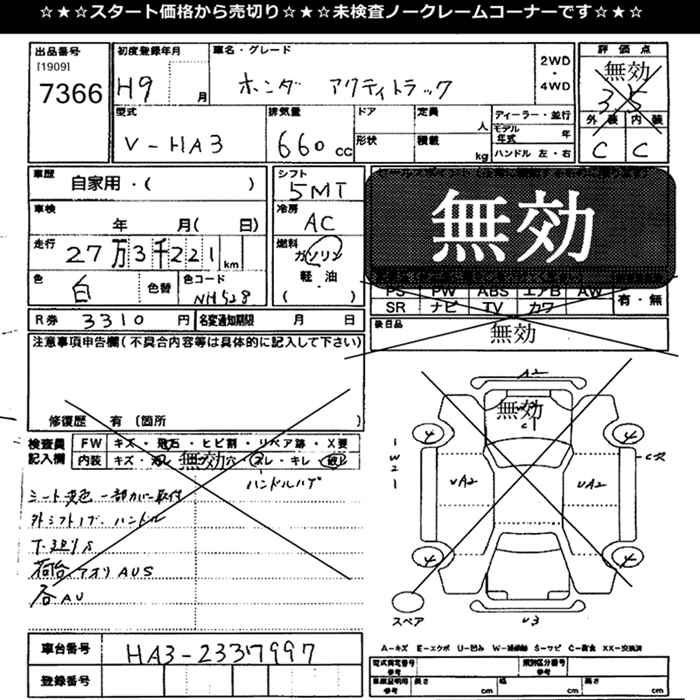 ☆★☆★スタート価格から売切り☆★☆★未検査ノークレームコーナーです☆★☆
出品番号
[1909]
7366
初度登録年月
H9 月
車名・グレード
ホンダ アクティトラック
2WD
・
4WD
評価点
無効
3.5
外装 内装
C C
型式
V-HA3
排気量
660cc
ドア
形状
定員
人
積載
kg
ディーラー・並行
モデル年式 年
ハンドル 左・右
車歴
自家用・( )
車検
年 月( 日)
走行
27万3千221km
色
白
色替
色コード
NH528
シフト
5MT
冷房
AC
燃料
ガソリン
軽・油
( )
無効
PS PW ABS エアB AW
SR ナビ TV カワ
有・無
後日品
無効
R券 3310 円
名変通知期限 月 日
注意事項申告欄(不具合内容等は具体的に記入して下さい)
修復歴 有 (箇所 )
検査員記入欄
FW キズ・飛石・ヒビ割・リペア跡・X要
内装 キズ・ 無効 穴・スレ・キレ・
ハンドルハゲ
シート変色 一部カバー取付
外シフトノブ、ハンドル
荷台アオリAUS
各AU
A2
無効
C1
4
4
1
W
2
1
UA2
UA2
4
4
スペア
U3
A-キズ E-エクボ U-凹み W-補修跡 S-サビ C-腐食 XX-交換済
車台番号
HA3-2337997
登録番号
型式指定番号
参考
類別区分番号
参考
車庫証明用
参考
長さ cm
幅 cm
高さ cm